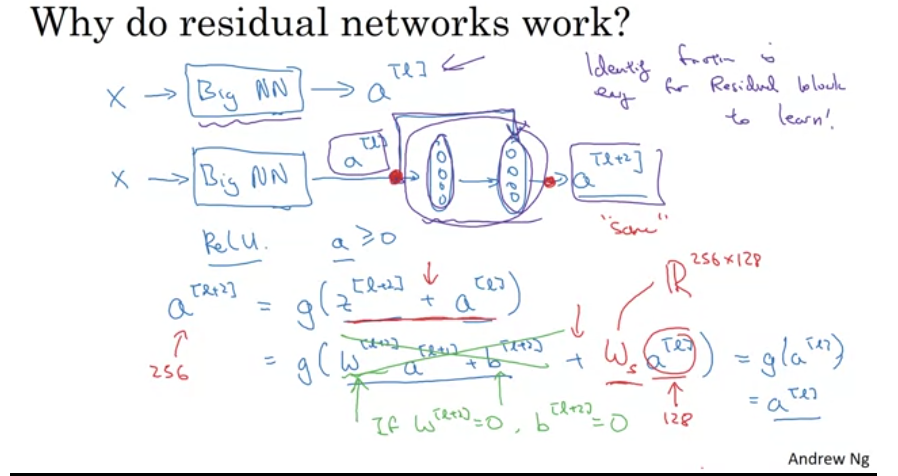 Why do residual networks work?
X → Big NN → a^[l]
Identity function is
easy for Residual block
to learn!
X → Big NN a^[l] → a^[l+2]
"same"
ReLU. a ≥ 0
a^[l+2] = g(z^[l+2] + a^[l])
256
= g(W^[l+2] a^[l+1] + b^[l+2] + W_s a^[l]) = g(a^[l])
= a^[l]
ℝ^256×128
128
If W^[l+2] = 0, b^[l+2] = 0
Andrew Ng